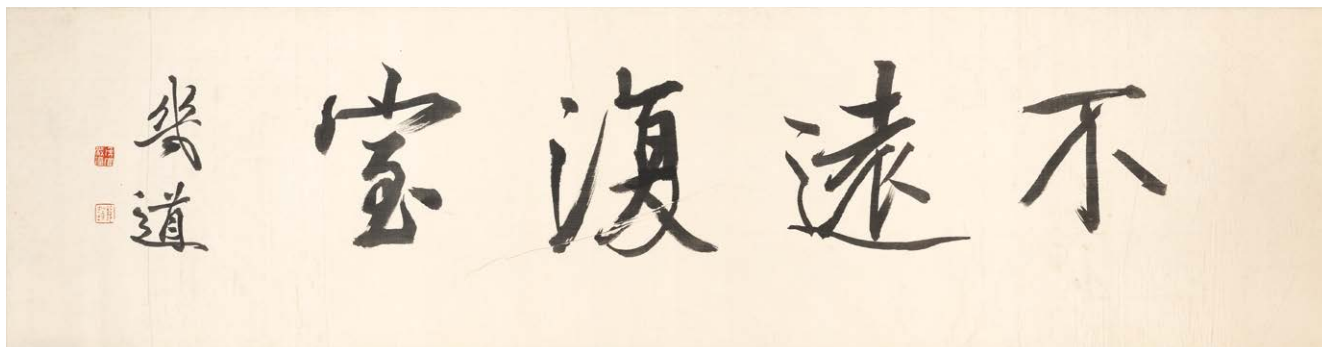 不遠復堂
幾道